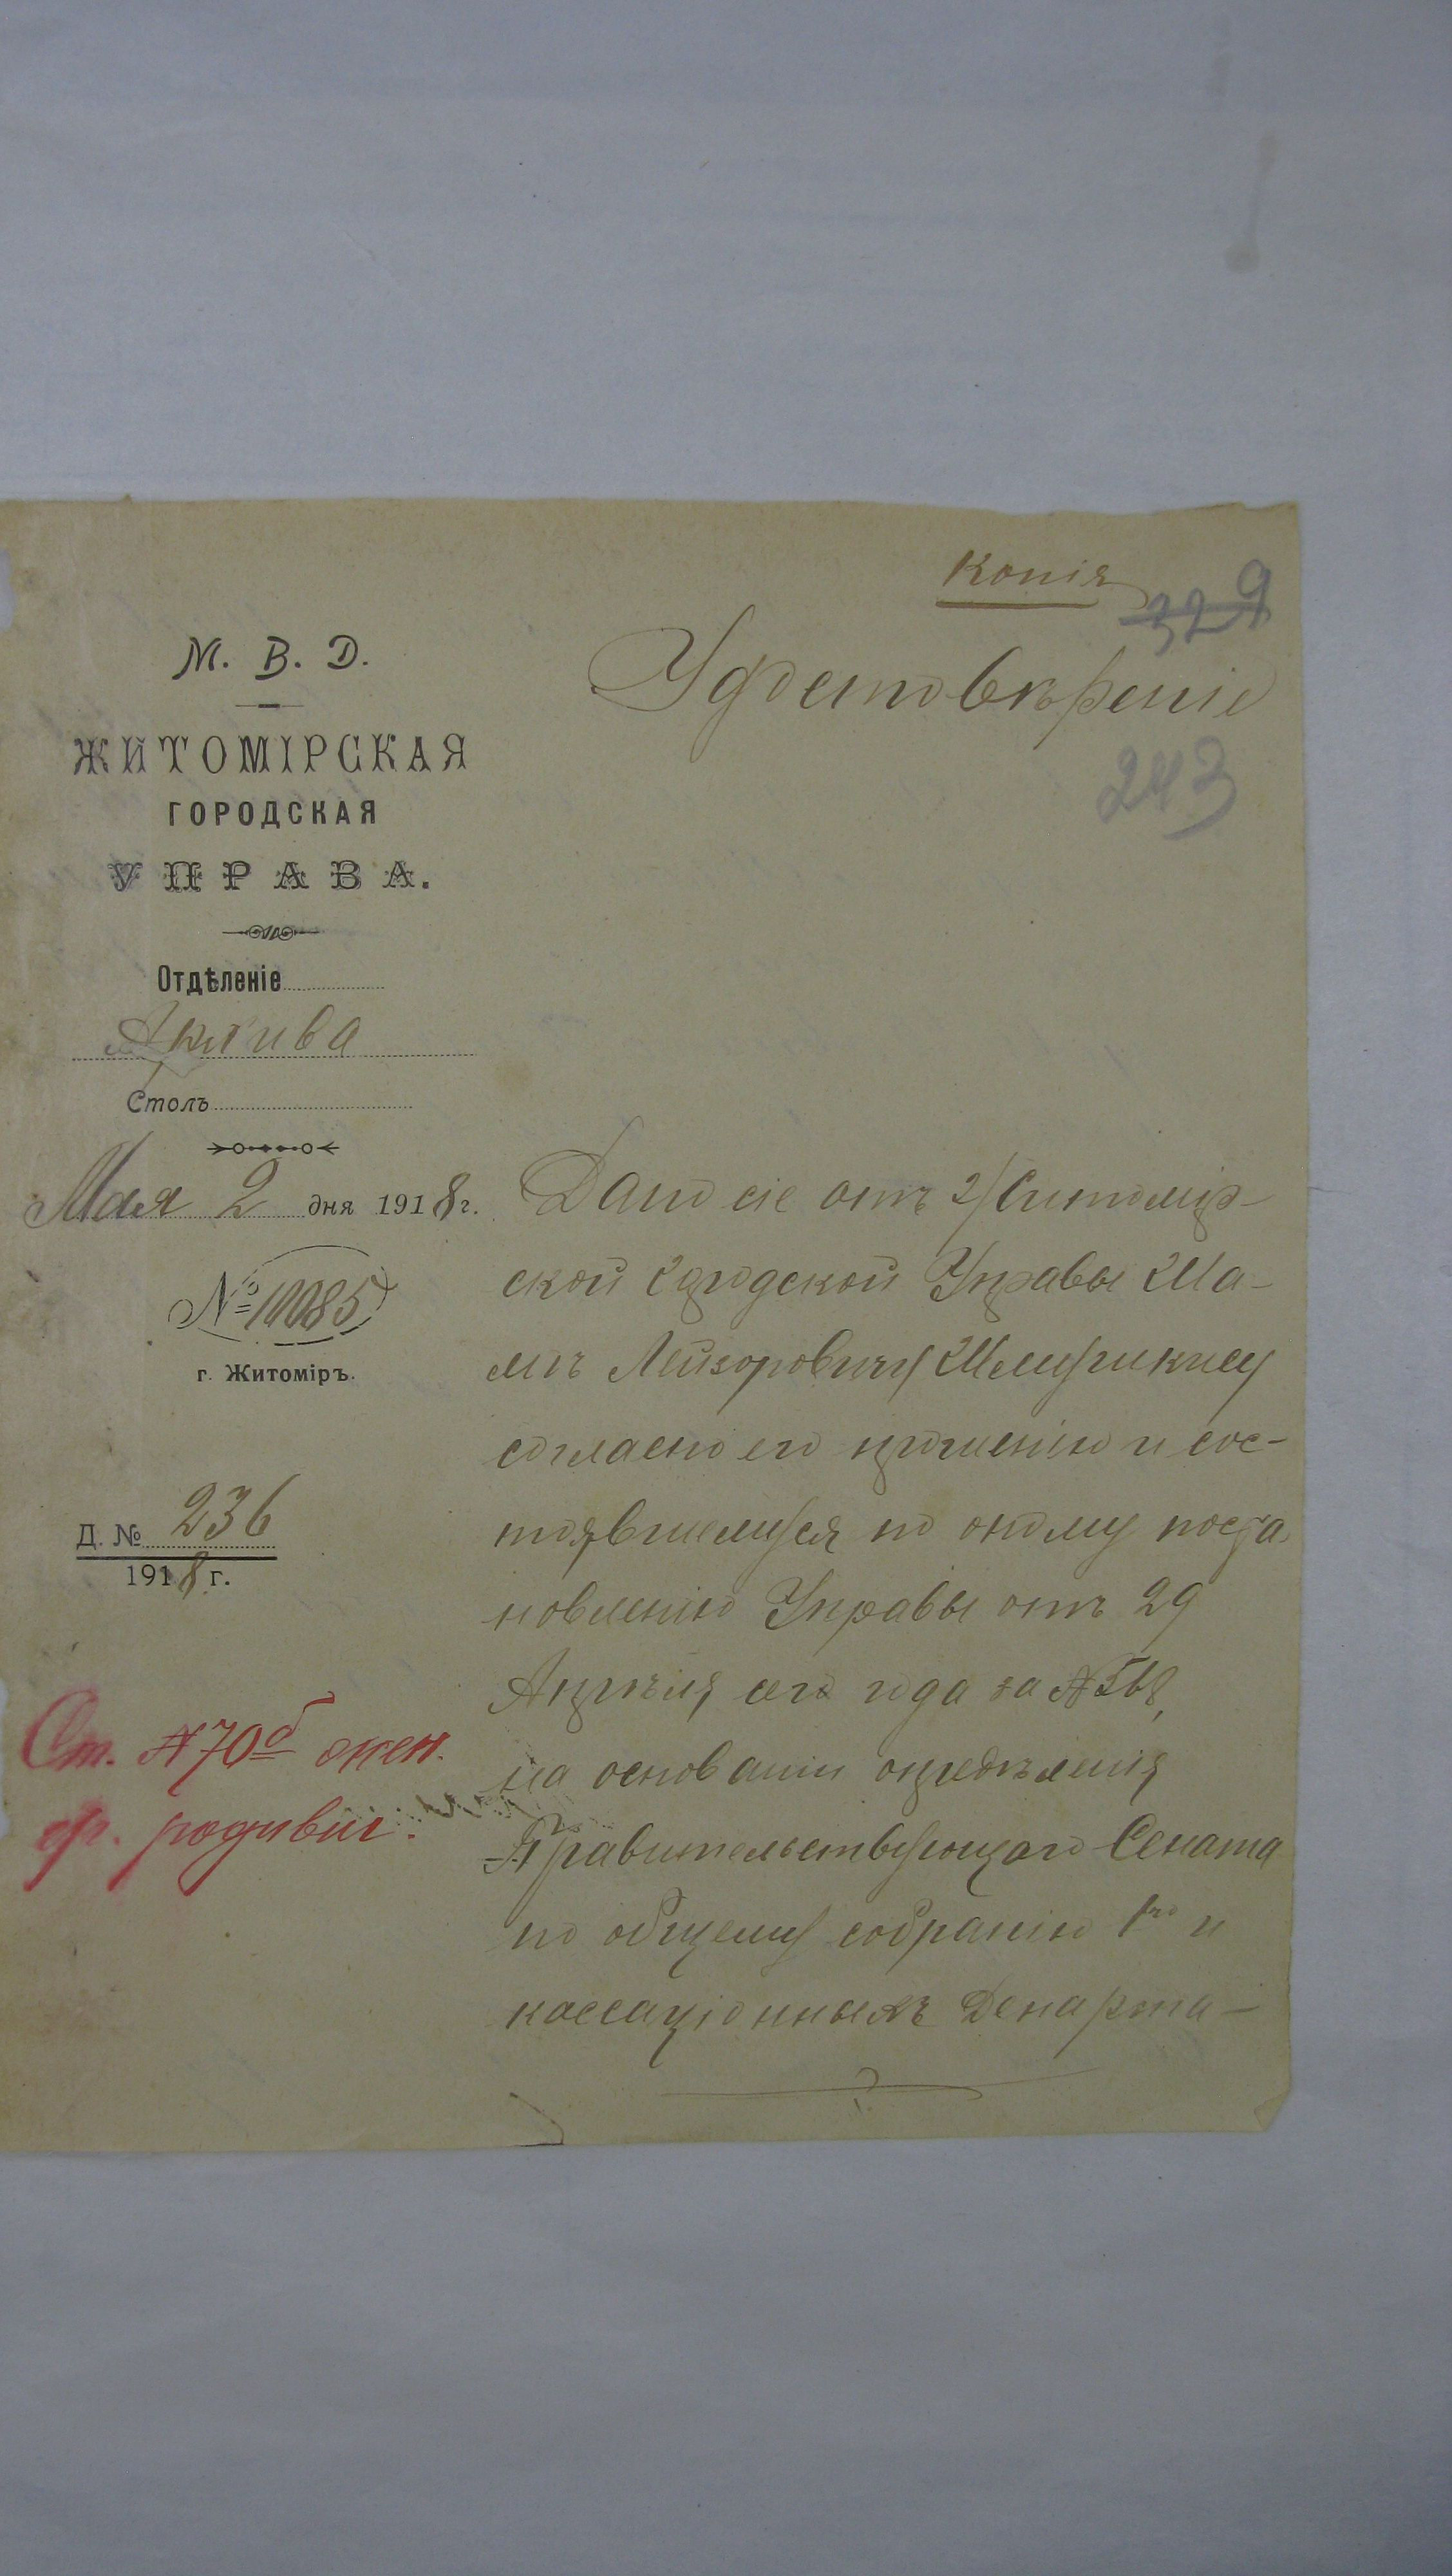 Копія
329
М. В. Д.
Удостовѣреніе
ЖИТОМІРСКАЯ
ГОРОДСКАЯ
УПРАВА.
243
Отдѣленіе
Архива
Столъ
Мая 2 дня 1918 г.
№ 10085
г. Житоміръ.
Д. № 236
1918 г.
Ст. №70
родивш.
Дано сіе отъ Житомір-
ской Городской Управы Ша-
Лейзоровичу
согласно его прошенію и сос-
тоявшемуся по оному поста
новленію Управы отъ 29
Апрѣля сего года за №568,
на основаніи опредѣленія
Правительствующаго Сената
по общему собранію 1го и
кассаціонныхъ Департа-